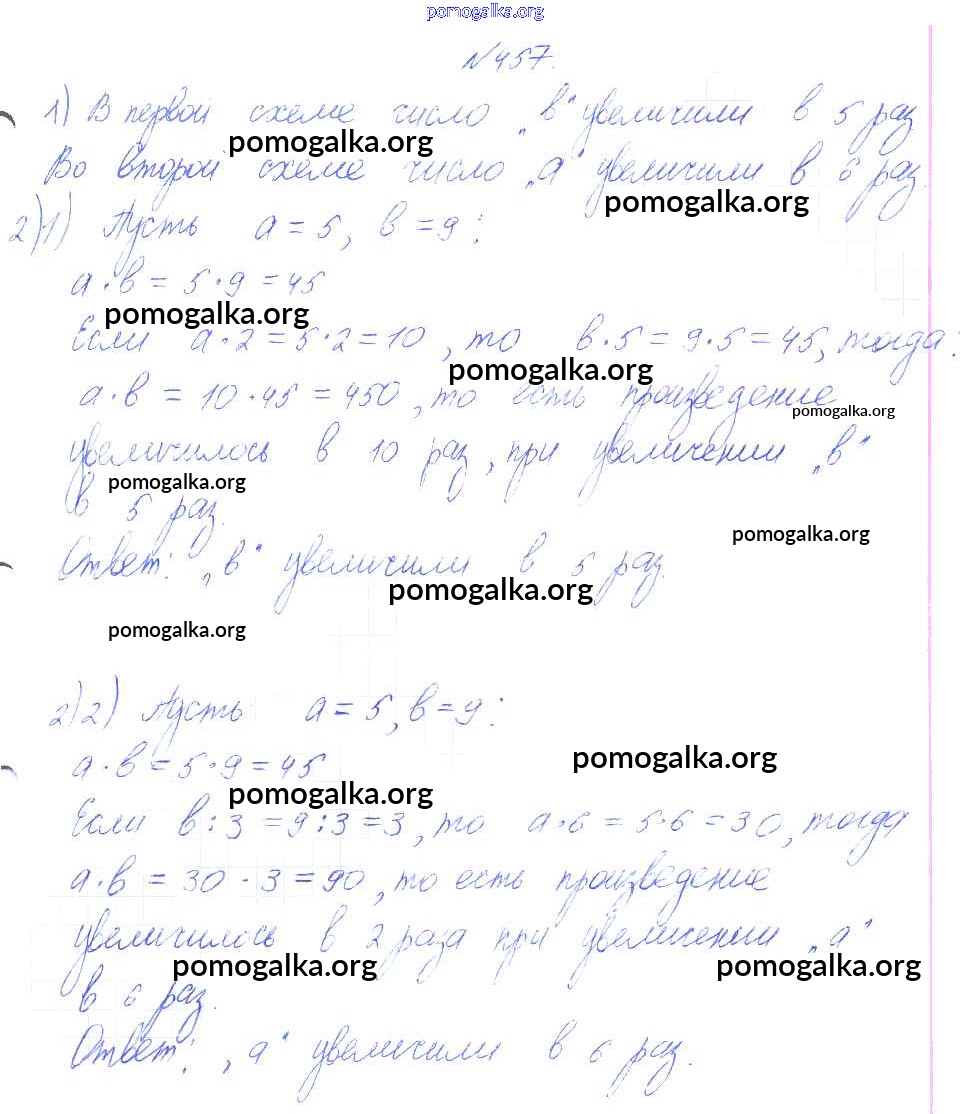 pomogalka.org
№457.
1) В первой схеме число „в“ увеличили в 5 раз
pomogalka.org
Во второй схеме число „а“ увеличили в 6 раз.
pomogalka.org
2)1) Пусть а = 5, в = 9:
а · в = 5 · 9 = 45
pomogalka.org
Если а · 2 = 5 · 2 = 10, то в · 5 = 9 · 5 = 45, тогда:
pomogalka.org
а · в = 10 · 45 = 450, то есть произведение
pomogalka.org
увеличилось в 10 раз, при увеличении „в“
pomogalka.org
в 5 раз.
pomogalka.org
Ответ: „в“ увеличили в 5 раз.
pomogalka.org
pomogalka.org
2)2) Пусть а = 5, в = 9:
а · в = 5 · 9 = 45
pomogalka.org
pomogalka.org
Если в : 3 = 9 : 3 = 3, то а · 6 = 5 · 6 = 30, тогда
а · в = 30 · 3 = 90, то есть произведение
увеличилось в 2 раза при увеличении „а“
pomogalka.org pomogalka.org
в 6 раз.
Ответ: „а“ увеличили в 6 раз.